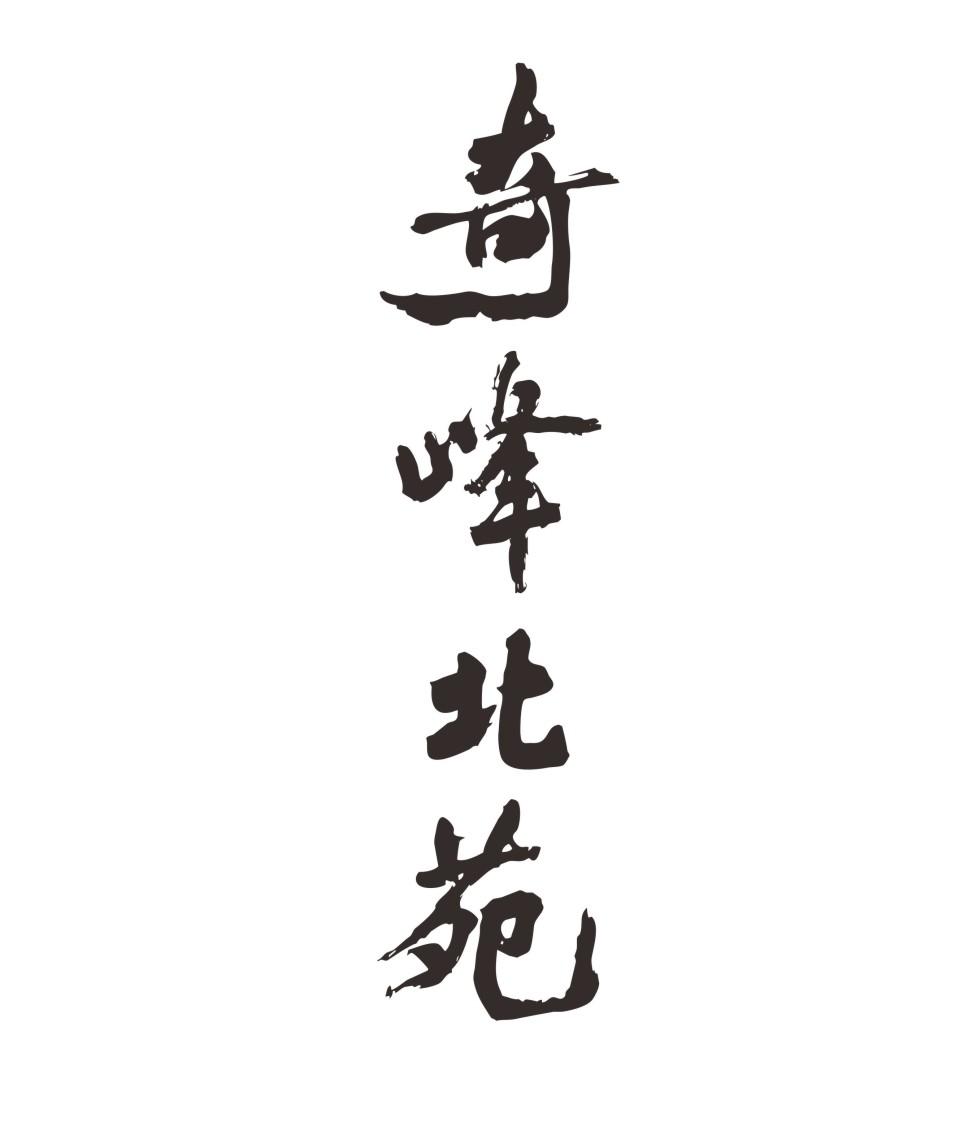 奇峰北苑